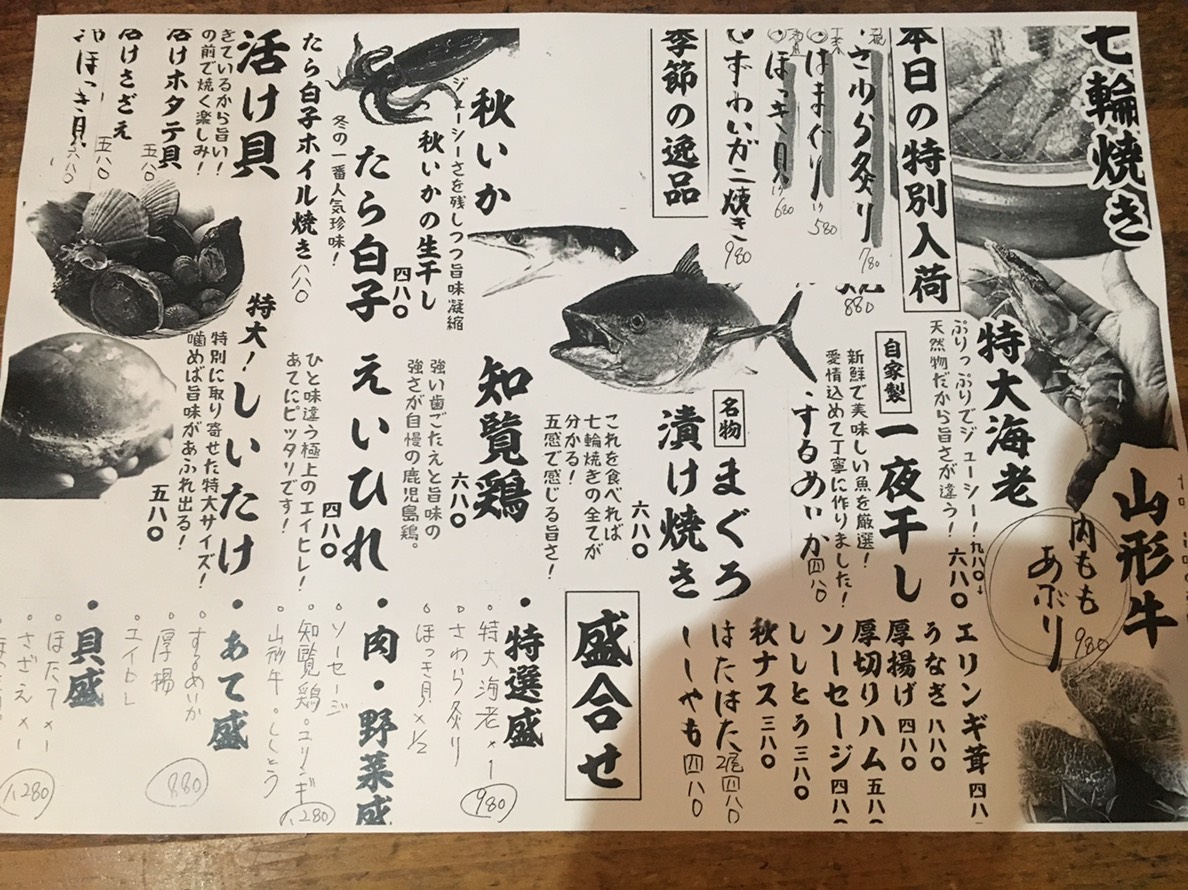 七輪焼き
本日の特別入荷
さわら炙り 780
はまぐり 580
ほっき貝 680
880
季節の逸品
ずわいガニ焼き 980
特大海老
ぷりっぷりでジューシー!
天然物だから旨さが違う!
六八〇
九八〇
自家製
一夜干し
新鮮で美味しい魚を厳選!
愛情込めて丁寧に作りました!
するめいか 四八〇
名物
まぐろ
漬け焼き
六八〇
これを食べれば
七輪焼きの全てが
分かる!
五感で感じる旨さ!
山形牛
内もも
あぶり
980
エリンギ茸 四八
うなぎ 八八〇
厚揚げ 四八〇
厚切りハム 五八〇
ソーセージ 四八〇
ししとう 三八〇
秋ナス 三八〇
はたはた 2尾 四八〇
ししゃも 四八〇
秋いか
ジューシーさを残しつつ旨味凝縮
秋いかの生干し
四八〇
たら白子
冬の一番人気珍味!
たら白子ホイル焼き 八八〇
活け貝
きているから旨い!
の前で焼く楽しみ!
活けホタテ貝 五八〇
活けさざえ 五八〇
ほっき貝 六八〇
知覧鶏
六八〇
強い歯ごたえと旨味の
強さが自慢の鹿児島鶏。
えいひれ
四八〇
ひと味違う極上のエイヒレ!
あてにピッタリです!
特大!しいたけ
特別に取り寄せた特大サイズ!
噛めば旨味があふれ出る!
五八〇
盛合せ
・特選盛
・特大海老×1
・さわら炙り
・ほっき貝×1/2
980
・肉・野菜盛
・ソーセージ
・知覧鶏・エリンギ
・山形牛・ししとう
1280
・あて盛
・するめいか
・厚揚
・エイヒレ
880
・貝盛
・ほたて×1
・さざえ×1
1280